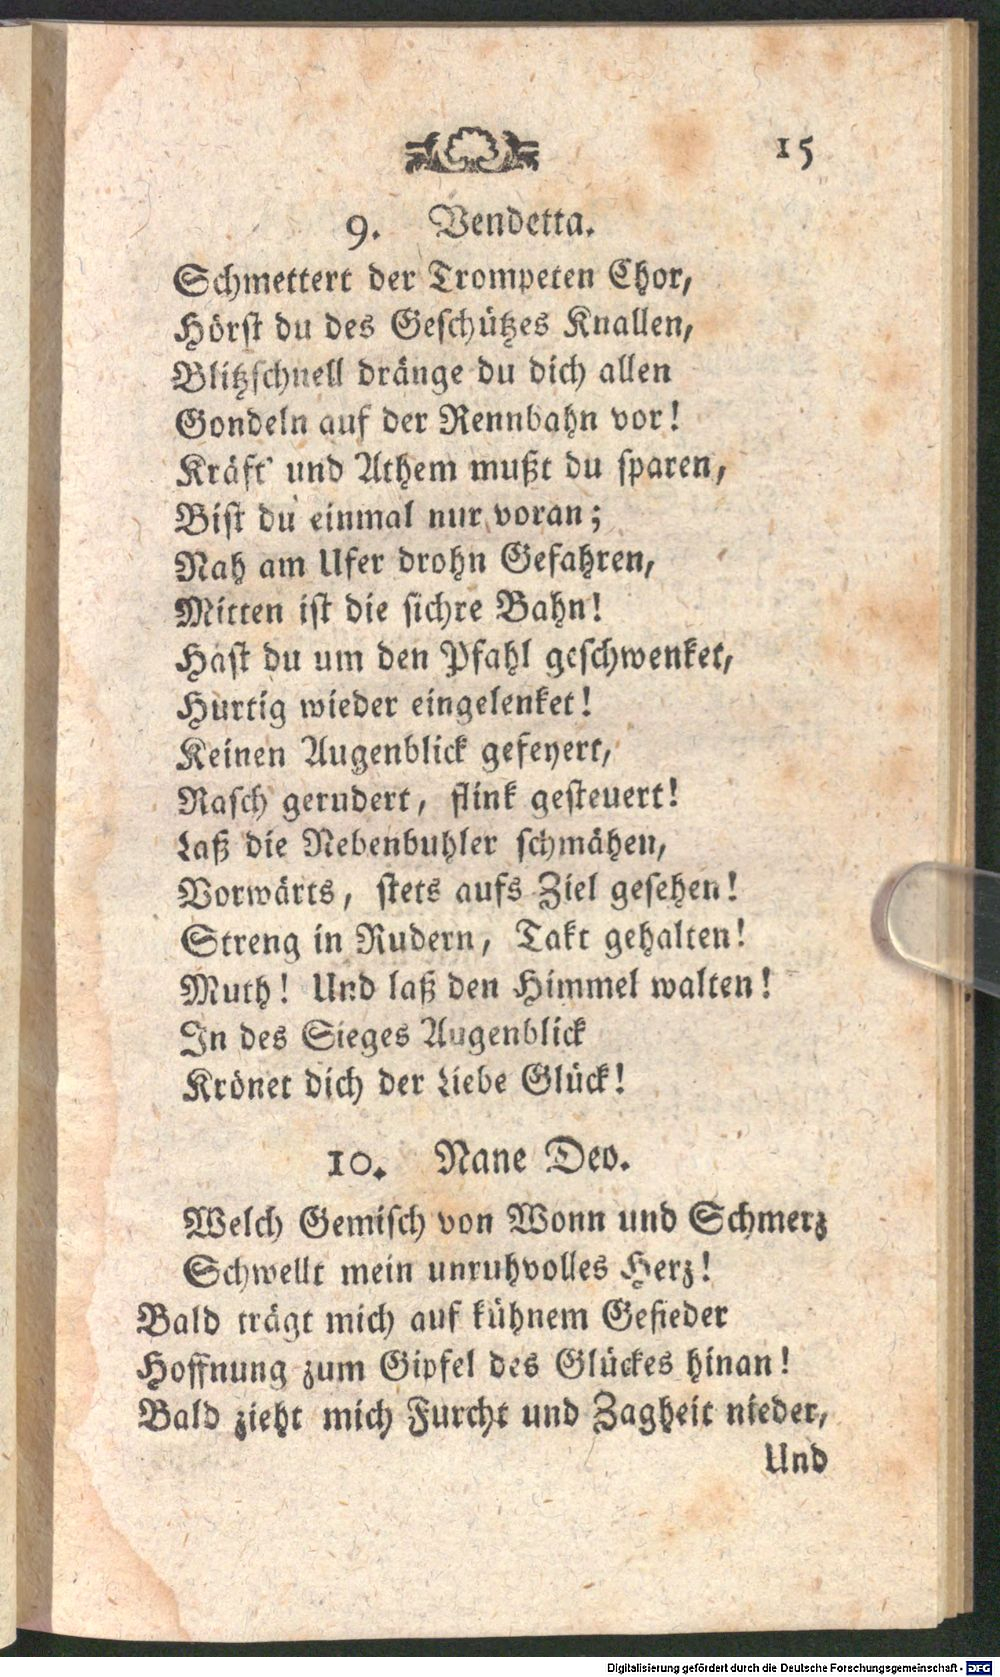 15
9. Vendetta.
Schmettert der Trompeten Chor,
Hörst du des Geschützes Knallen,
Blitzschnell dränge du dich allen
Gondeln auf der Rennbahn vor!
Kräft' und Athem mußt du sparen,
Bist du einmal nur voran;
Nah am Ufer drohn Gefahren,
Mitten ist die sichre Bahn!
Hast du um den Pfahl geschwenket,
Hurtig wieder eingelenket!
Keinen Augenblick gefeyert,
Rasch gerudert, flink gesteuert!
Laß die Nebenbuhler schmähen,
Vorwärts, stets aufs Ziel gesehen!
Streng in Rudern, Takt gehalten!
Muth! Und laß den Himmel walten!
In des Sieges Augenblick
Krönet dich der Liebe Glück!
10. Nane Deo.
Welch Gemisch von Wonn und Schmerz
Schwellt mein unruhvolles Herz!
Bald trägt mich auf kühnem Gefieder
Hoffnung zum Gipfel des Glückes hinan!
Bald zieht mich Furcht und Zagheit nieder,
Und
Digitalisierung gefördert durch die Deutsche Forschungsgemeinschaft - DFG